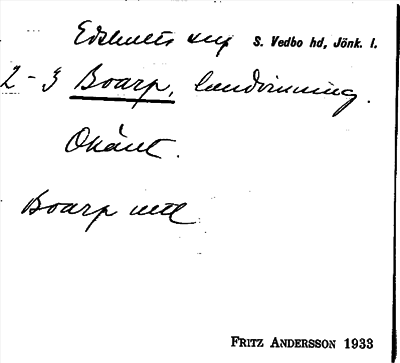 Edshults snp S. Vedbo hd, Jönk. l.
2-3 Boarp, lundvinning.
Okänt.
Boarp uttl
FRITZ ANDERSSON 1933